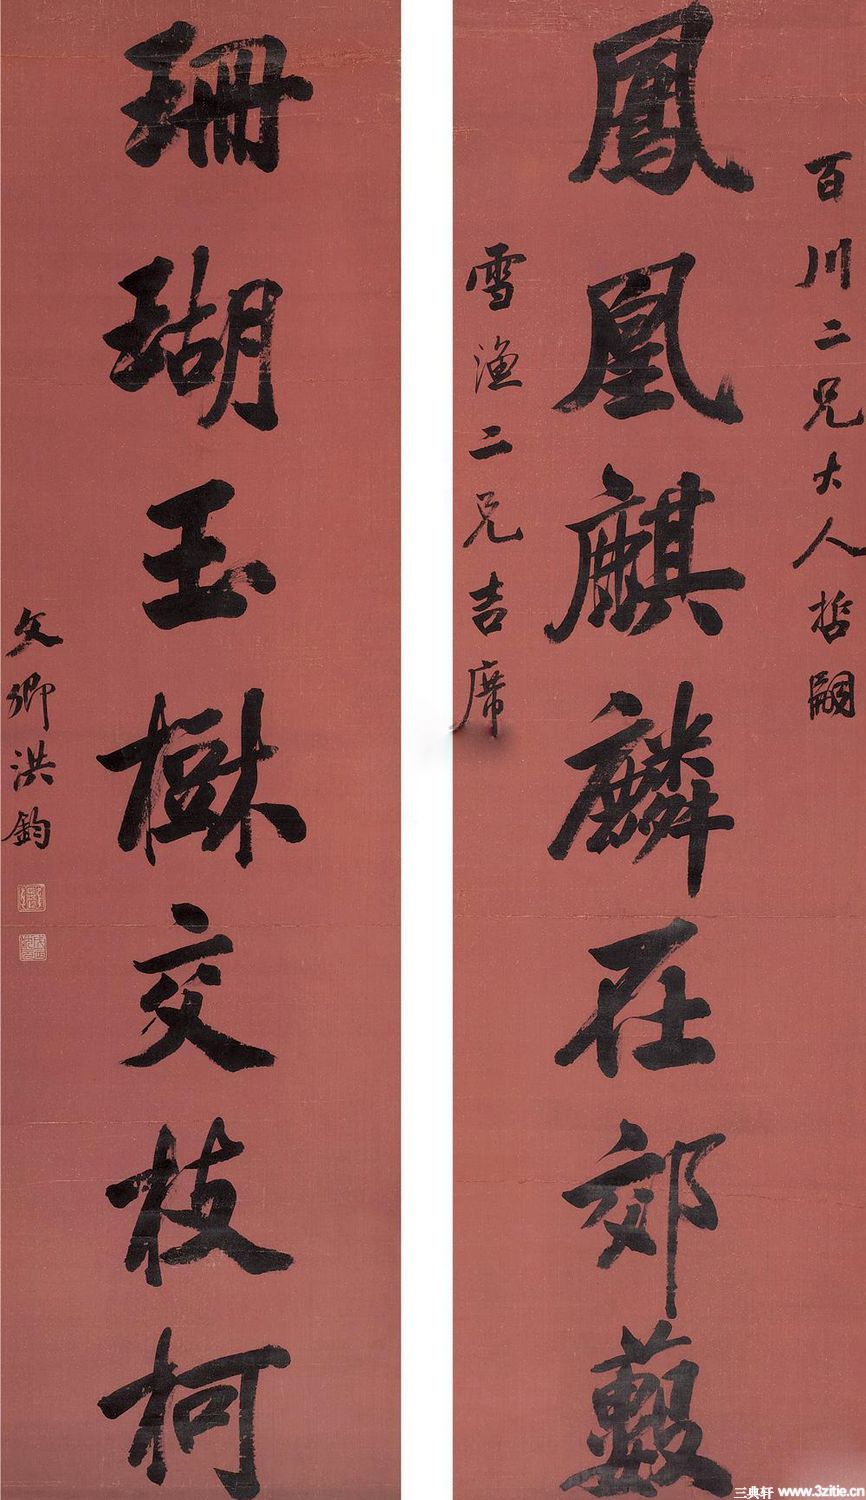 百川二兄大人哲嗣
鳳凰麒麟在郊藪
雪漁二兄吉席
珊瑚玉樹交枝柯
文卿洪鈞
三典轩 www.3zitie.cn